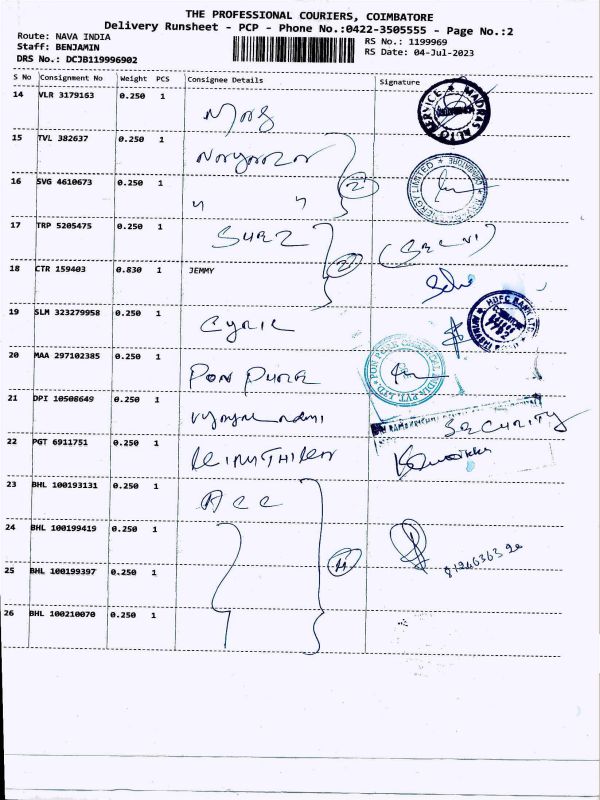 THE PROFESSIONAL COURIERS, COIMBATORE
Delivery Runsheet - PCP - Phone No.:0422-3505555 - Page No.:2
Route: NAVA INDIA
RS No.: 1199969
Staff: BENJAMIN
RS Date: 04-Jul-2023
DRS No.: DCJB119996902
S No Consignment No Weight PCS Consignee Details Signature
14 VLR 3179163 0.250 1
MADRAS AUTO SERVICE
15 TVL 382637 0.250 1
Narayanan
16 SVG 4610673 0.250 1
" " 2
ENERGY LIMITED
COIMBATORE
17 TRP 5205475 0.250 1
(SELVI)
2
18 CTR 159403 0.830 1 JEMMY
19 SLM 323279958 0.250 1
Cyric
HDFC BANK LTD.
20 MAA 297102385 0.250 1
PON PURE
PON PURE CHEMICAL INDIA PVT. LTD.
21 DPI 10508649 0.250 1
SECURITY
22 PGT 6911751 0.250 1
KIRUTHIKA
23 BHL 100193131 0.250 1
ACC
24 BHL 100199419 0.250 1
4
25 BHL 100199397 0.250 1
26 BHL 100210070 0.250 1